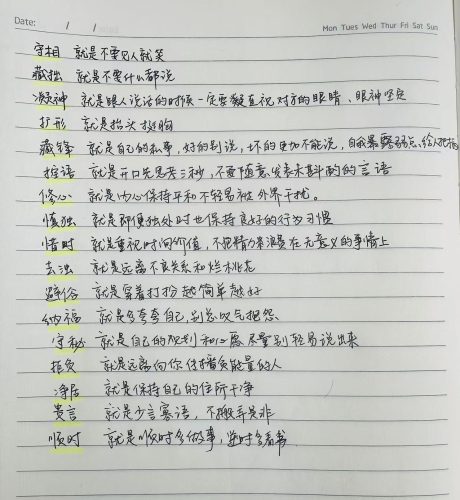 Date: / /
Mon Tues Wed Thur Fri Sat Sun
守相 就是不要见人就笑
藏拙 就是不要什么都说
凝神 就是跟人说话的时候一定要凝直视对方的眼睛、眼神坚定
扩形 就是抬头挺胸
藏锋 就是自己的私事,好的别说,坏的更加不能说,自我暴露弱点、给人把柄
控语 就是开口先思考三秒,不要随意发表未斟酌的言语
修心 就是内心保持平和不轻易被外界干扰。
慎独 就是即便独处时也保持良好的行为习惯
惜时 就是重视时间价值,不把精力浪费在无意义的事情上
去浊 就是远离不良关系和烂桃花
避俗 就是穿着打扮越简单越好
纳福 就是多夸夸自己,别总叹气抱怨
守秘 就是自己的规划和心愿尽量别轻易说出来
拒负 就是远离向你传播负能量的人
净居 就是保持自己的住所干净
贵言 就是少言寡语,不搬弄是非
顺时 就是顺时多做事,逆时多看书